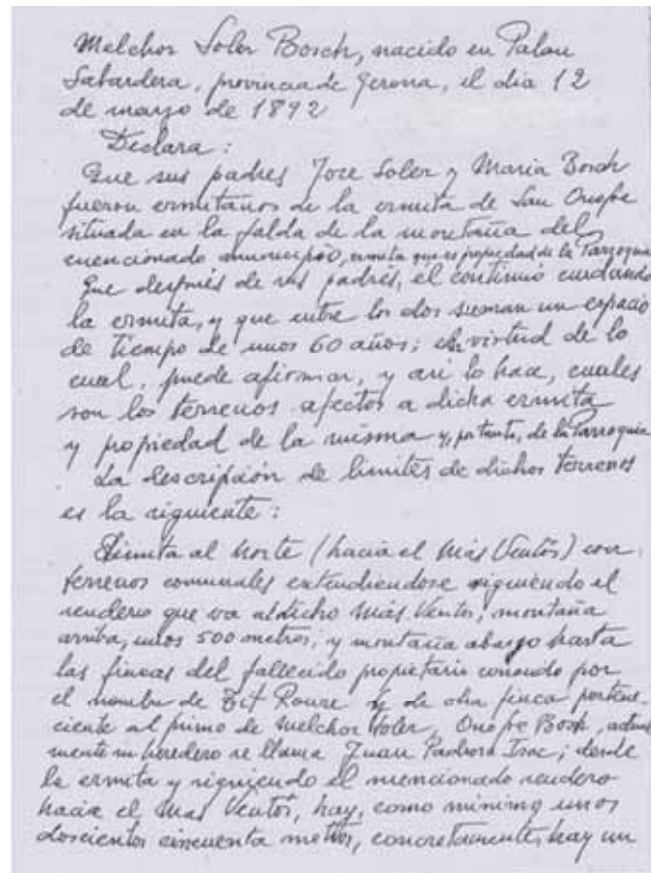 Melchor Soler Bosch, nacido en Palau
Sabardera, provincia de Gerona, el dia 12
de marzo de 1892
Declara:
Que sus padres Jose Soler y Maria Bosch
fueron ermitaños de la ermita de San Onofre
situada en la falda de la montaña del
mencionado municipio, ermita que es propiedad de la Parroquia
Que después de sus padres, el continuó cuidando
la ermita, y que entre los dos suman un espacio
de tiempo de unos 60 años; en virtud de lo
cual, puede afirmar, y asi lo hace, cuales
son los terrenos afectos a dicha ermita
y propiedad de la misma y, por tanto, de la Parroquia
La descripción de limites de dichos terrenos
es la siguiente:
Limita al Norte (hacia el Más Ventós) con
terrenos comunales extendiendose siguiendo el
sendero que va al dicho Más Ventós, montaña
arriba, unos 500 metros, y montaña abajo hasta
las fincas del fallecido propietario conocido por
el nombre de Roure y de otra finca pertene-
ciente al primo de Melchor Soler, Onofre Bosch, actual
mente su heredero se llama Juan Isac; desde
la ermita y siguiendo el mencionado sendero
hacia el Mas Ventós, hay, como minimo unos
doscientos cincuenta metros, concretamente, hay un